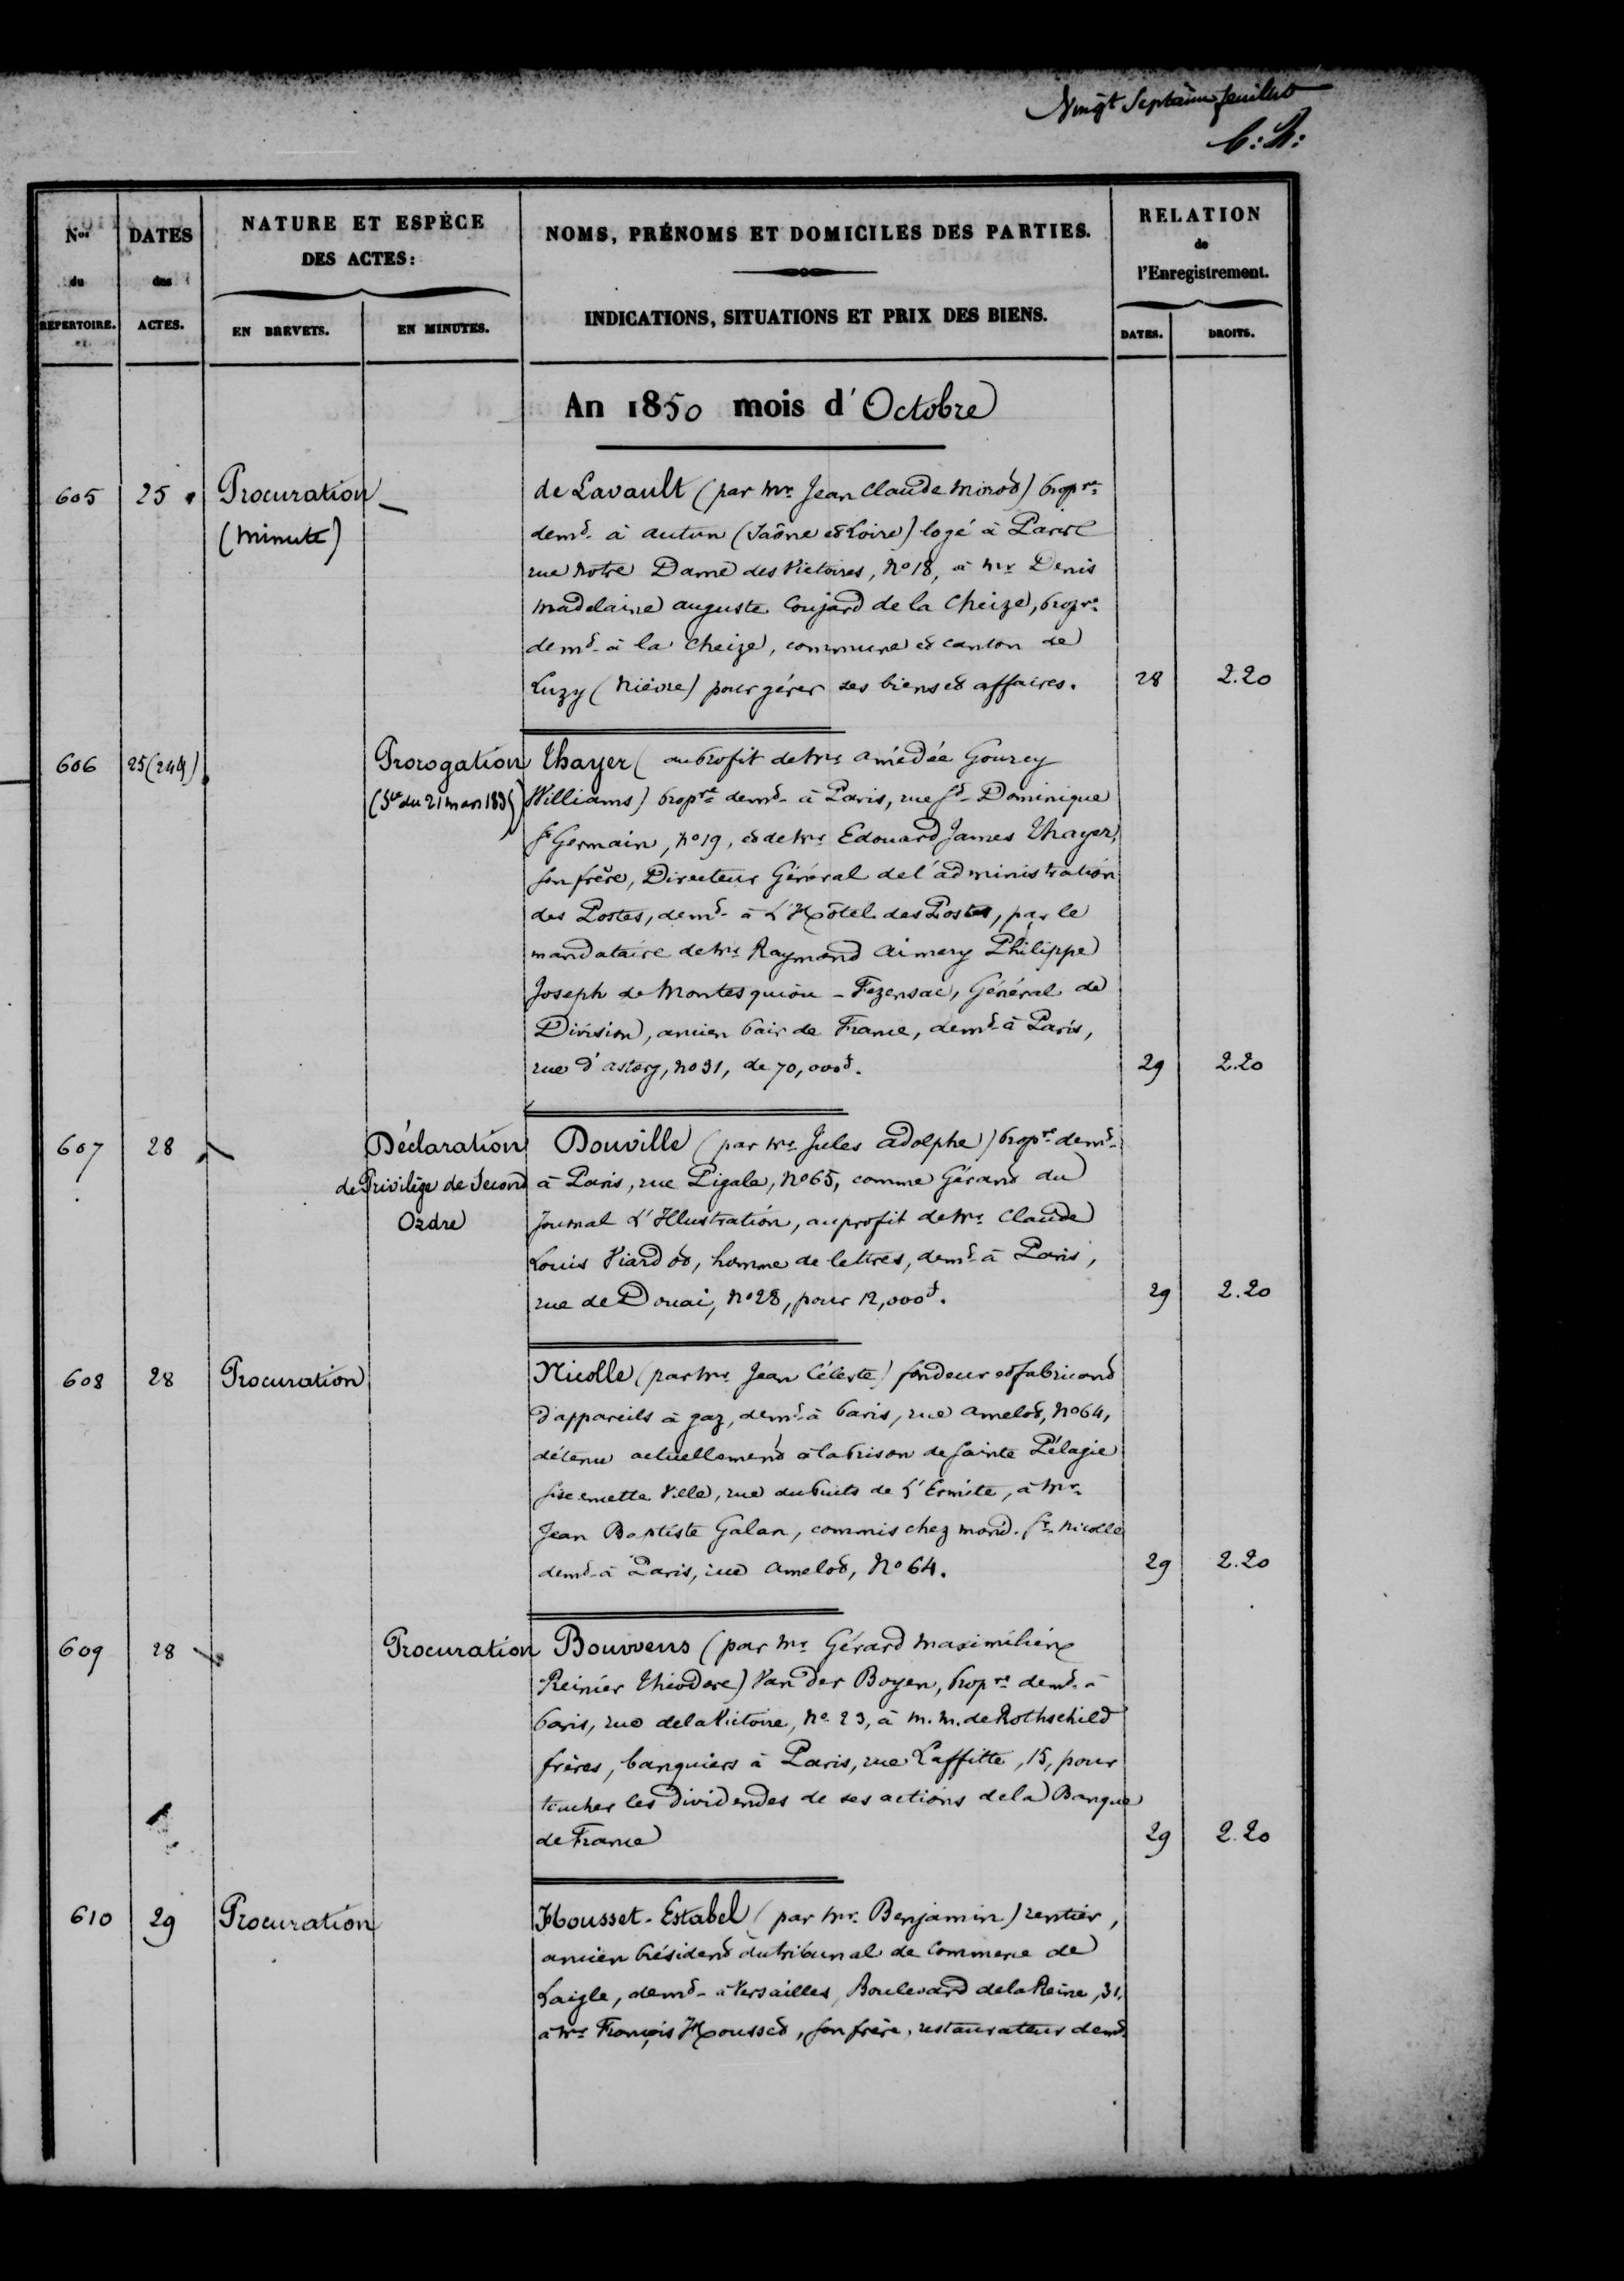 Vingt Septième feuillet
C: A:
Nos du RÉPERTOIRE.
DATES des ACTES.
NATURE ET ESPÈCE
DES ACTES:
EN BREVETS.
EN MINUTES.
NOMS, PRÉNOMS ET DOMICILES DES PARTIES.
INDICATIONS, SITUATIONS ET PRIX DES BIENS.
RELATION
de
l'Enregistrement.
DATES.
DROITS.
An 1850 mois d'Octobre
605 25 Procuration de Lavault (par Mr. Jean Claude Minod) propre.
(Minute) demt. à autun (Saône et Loire) logé à Paris
rue Notre Dame des Victoires, No 18, à Mr Denis
Madelaine auguste Coujard de la Cheize, propre.
demt. à la Cheize, commune et canton de
Luzy (Nièvre) pour gérer ses biens et affaires. 28 2.20
606 25 (244) Prorogation Thayer (au profit de Mr. amédée Gourcy
(du 21 mars) Williams) propre. demt. à Paris, rue St. Dominique
St Germain, No 19, et de Mr. Edouard James Thayer,
son frère, Directeur Général de l'administration
des Postes, demt. à L'Hôtel des Postes, par le
mandataire de Mr. Raymond Aimery Philippe
Joseph de Montesquiou - Fezensac, Général de
Division, ancien Pair de France, demt. à Paris,
rue d'astorg, No 31, de 70,000f. 29 2.20
607 28 Déclaration Douville (par Mr. Jules adolphe) propre. demt.
de Privilège de Second à Paris, rue Pigale, No 65, comme Gérant du
Ordre Journal L'Illustration, au profit de Mr. Claude
Louis Viardot, homme de lettres, demt. à Paris,
rue de Douai, No 28, pour 12,000f. 29 2.20
608 28 Procuration Nicolle (par Mr. Jean Céleste) fondeur et fabricant
d'appareils à gaz, demt. à Paris, rue amelot, No 64,
détenu actuellement à la Prison de Sainte Pélagie
sise en cette Ville, rue du Puits de L'Ermite, à Mr.
Jean Baptiste Galan, commis chez mond. Sr. Nicolle
demt. à Paris, rue amelot, No 64. 29 2.20
609 28 Procuration Bouwens (par Mr. Gérard Maximilien
Reinier Théodore) Van der Boyen, propre. demt. à
Paris, rue de la Victoire, No. 23, à M.M. de Rothschild
frères, banquiers à Paris, rue Laffitte, 15, pour
toucher les dividendes de ses actions de la Banque
de France 29 2.20
610 29 Procuration Housset-Estabel (par Mr. Benjamin) rentier,
ancien Président du tribunal de Commerce de
Laigle, demt. à Versailles, Boulevard de la Reine, 31,
à Mr. François Housset, son frère, restaurateur demt.